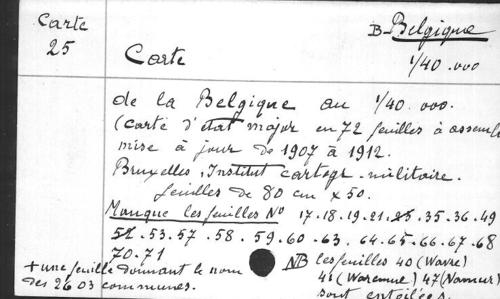 Carte
25
B-Belgique
1/40.000
Carte
de la Belgique au 1/40.000.
(Carte d'état major en 72 feuilles à assem
mise à jour de 1907 à 1912.
Bruxelles, Institut cartogr. militaire.
feuilles de 80 cm x 50.
Manque les feuilles No 17.18.19.21.25.35.36.49
52.53.57.58.59.60.63.64.65.66.67.68
70.71
NB les feuilles 40 (Wavre)
+ une feuille donnant le nom
41 (Waremme) 47 (Namur)
des 2603 communes.
sont entoilées.